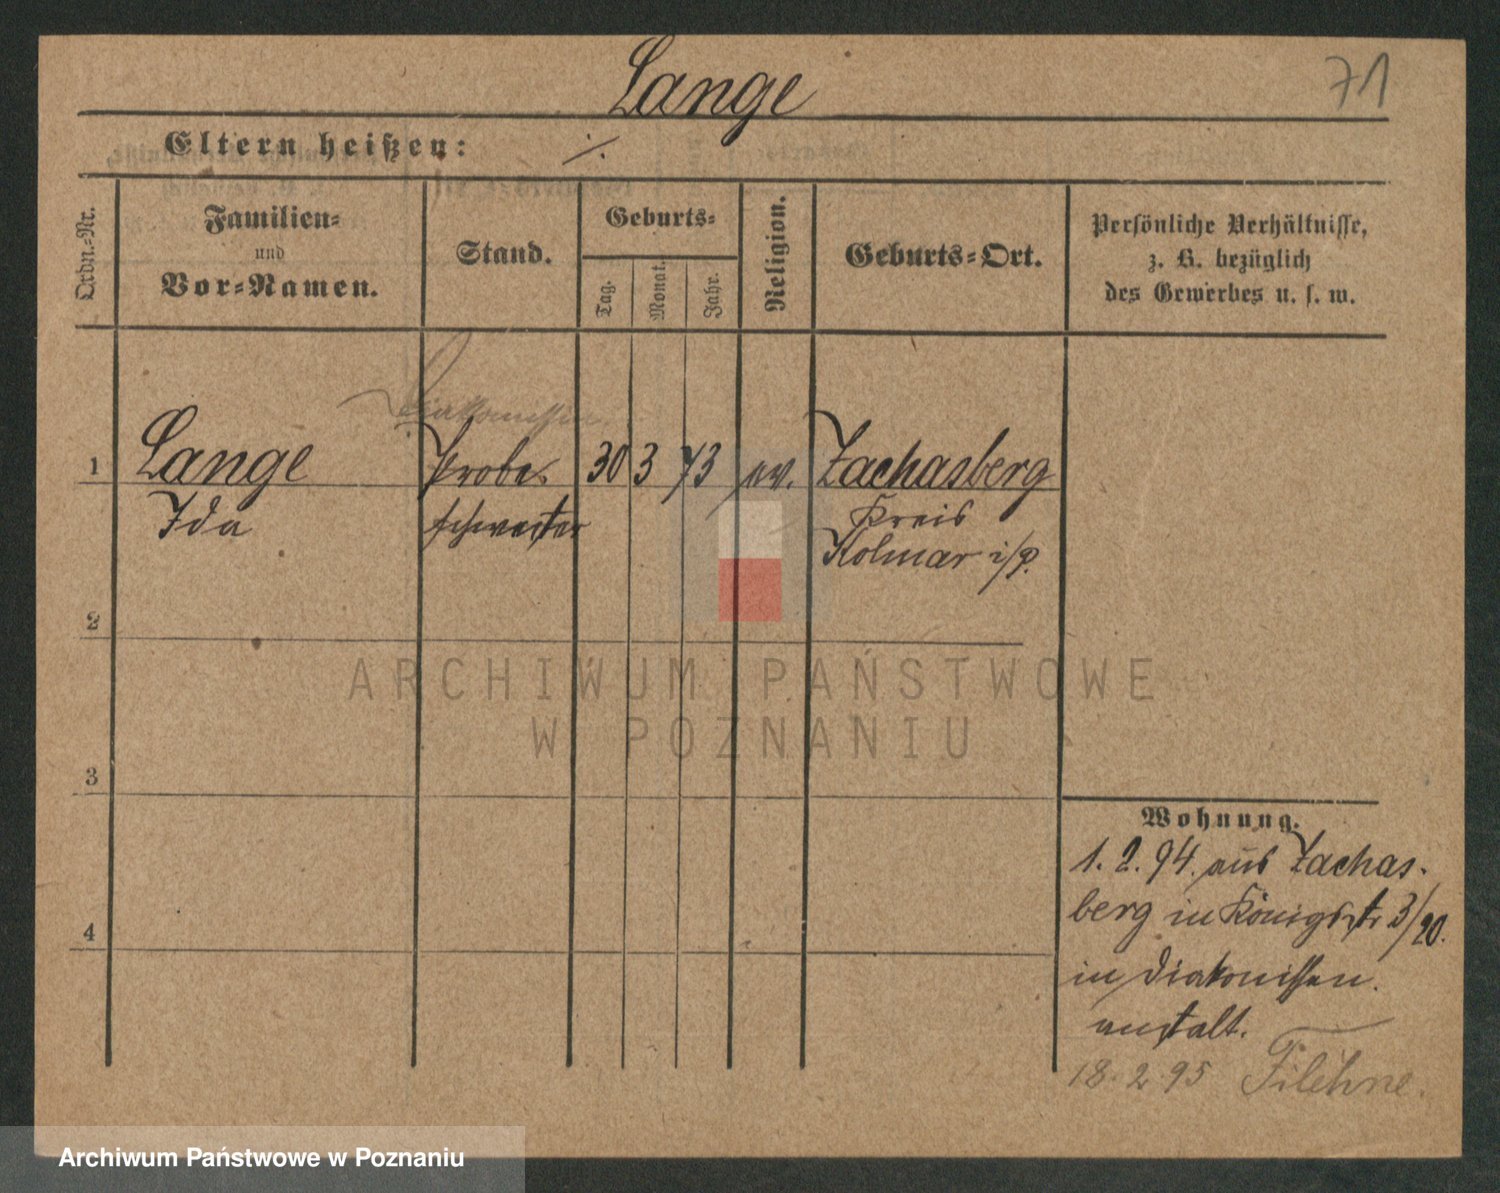 Lange
71
Eltern heißen: ./.
Ordn.-Nr.
Familien-
und
Vor-Namen.
Stand.
Geburts-
Tag.
Monat.
Jahr.
Religion.
Geburts-Ort.
Persönliche Verhältnisse,
z. B. bezüglich
des Gewerbes u. s. w.
Diakonissin
1 Lange Probe- 30 3 73 ev. Zachasberg
Ida schwester Kreis
Kolmar i/P.
2
3
4
Wohnung.
1. 2. 94. aus Zachas-
berg in Königstr 3/20.
in Diakonissen-
anstalt.
18. 2 95 Filehne.
ARCHIWUM PAŃSTWOWE
W POZNANIU
Archiwum Państwowe w Poznaniu